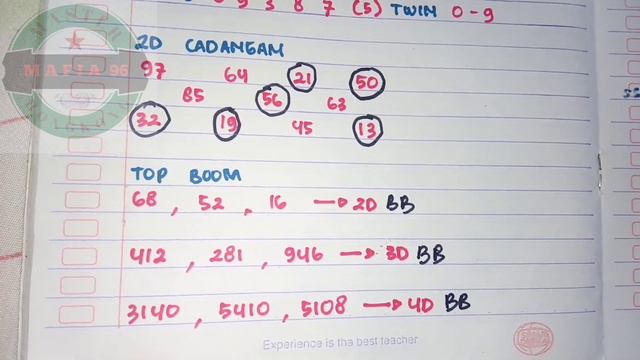 9 3 8 7 (5) TWIN 0-9
2D CADANGAM
97 64 21 50
85 56 63
32 19 45 13
TOP BOOM
68 , 52 , 16 → 2D BB
412 , 281 , 946 → 3D BB
3140 , 5410 , 5108 → 4D BB
Experience is the best teacher
MAFIA 96